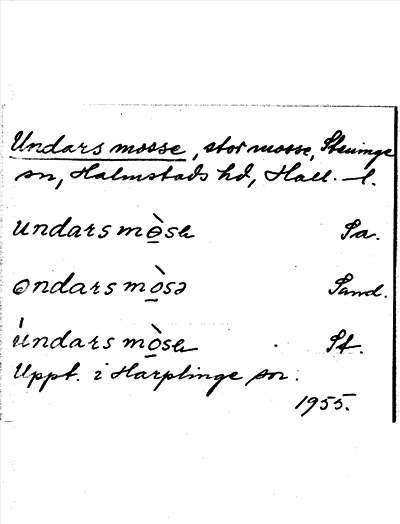 Undars mosse, stor mosse, Steninge
sn, Halmstads hd, Hall. l.
undarsmò̲sɐ Sa.
ondarsmò̲sə Sand.
úndarsmò̲sɐ St.
Uppt. i Harplinge sn.
1955.